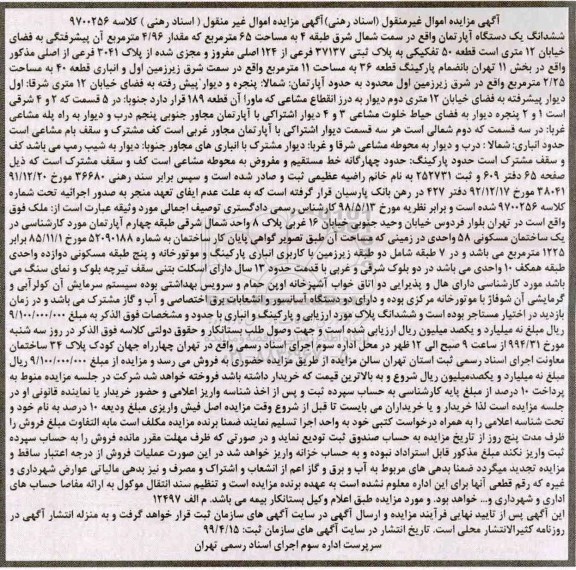 آگهی مزایده اموال غیرمنقول (اسناد رهنی)آگهی مزایده اموال غیر منقول ( اسناد رهنی ) کلاسه ۹۷۰۰۲۵۶
ششدانگ یک دستگاه آپارتمان واقع در سمت شمال شرق طبقه ۴ به مساحت ۶۵ مترمربع که مقدار ۴/۹۶ مترمربع آن پیشرفتگی به فضای
خیابان ۱۲ متری است قطعه ۵۰ تفکیکی به پلاک ثبتی ۳۷۱۳۷ فرعی از ۱۲۴ اصلی مفروز و مجزی شده از پلاک ۳۰۴۱ فرعی از اصلی مذکور
واقع در بخش ۱۱ تهران بانضمام پارکینگ قطعه ۳۶ به مساحت ۱۱ مترمربع واقع در سمت شرق زیرزمین اول و انباری قطعه ۴۰ به مساحت
۲/۲۵ مترمربع واقع در شرق زیرزمین اول محدود به حدود آپارتمان: شمالا: پنجره و دیوار پیش رفته به فضای خیابان ۱۲ متری شرقا: اول
دیوار پیشرفته به فضای خیابان ۱۲ متری دوم دیوار به درز انقطاع مشاعی که ماورا آن قطعه ۱۸۹ قرار دارد جنوبا: در ۵ قسمت که ۲ و ۴ شرقی
است ۱ و ۲ پنجره دیوار به فضای حیاط خلوت مشاعی ۳ و ۴ دیوار اشتراکی با آپارتمان مجاور جنوبی پنجم درب و دیوار به راه پله مشاعی
غربا: در سه قسمت که دوم شمالی است هر سه قسمت دیوار اشتراکی با آپارتمان مجاور غربی است کف مشترک و سقف بام مشاعی است
حدود انباری: شمالا : درب و دیوار به محوطه مشاعی شرقا و غربا: دیوار مشترک با انباری های مجاور جنوبا: دیوار به شیب رمپ می باشد کف
و سقف مشترک است حدود پارکینگ: حدود چهارگانه خط مستقیم و مفروض به محوطه مشاعی است کف و سقف مشترک است که ذیل
صفحه ۶۵ دفتر ۶۰۹ و ثبت ۲۵۲۷۳۱ به نام خانم راضیه عظیمی ثبت و صادر شده است و سپس برابر سند رهنی ۳۶۶۸۰ مورخ ۹۱/۱۲/۲۰
۳۸۰۴۱ مورخ ۹۲/۱۲/۱۷ دفتر ۴۲۷ در رهن بانک پارسیان قرار گرفته است که به علت عدم ایفای تعهد منجر به صدور اجرائیه تحت شماره
کلاسه ۹۷۰۰۲۵۶ شده است و برابر نظریه مورخ ۹۸/۵/۱۳ کارشناس رسمی دادگستری توصیف اجمالی مورد وثیقه عبارت است از: ملک فوق
واقع است در تهران بلوار فردوس خیابان وحید جنوبی خیابان ۱۶ غربی پلاک ۸ واحد شمال شرقی طبقه چهارم آپارتمان مورد کارشناسی در
یک ساختمان مسکونی ۵۸ واحدی در زمینی که مساحت آن طبق تصویر گواهی پایان کار ساختمان به شماره ۵۲۰۹۰۱۸۸ مورخ ۸۵/۱۱/۱ برابر
۱۲۲۵ مترمربع می باشد و در ۷ طبقه شامل دو طبقه زیرزمین با کاربری انباری پارکینگ و موتورخانه و پنج طبقه مسکونی دوازده واحدی
طبقه همکف ۱۰ واحدی می باشد در دو بلوک شرقی و غربی با قدمت حدود ۱۳ سال دارای اسکلت بتنی سقف تیرچه بلوک و نمای سنگ می
باشد مورد کارشناسی دارای هال و پذیرایی دو اتاق خواب آشپزخانه اوپن حمام و سرویس بهداشتی بوده سیستم سرمایش آن کولرآبی و
گرمایشی آن شوفاژ با موتورخانه مرکزی بوده و دارای دو دستگاه آسانسور و انشعابات برق اختصاصی و آب و گاز مشترک می باشد و در زمان
بازدید در اختیار مستاجر بوده است و ششدانگ پلاک مورد ارزیابی و پارکینگ و انباری با حدود و مشخصات فوق الذکر به مبلغ ۹/۱۰۰/۰۰۰/۰۰۰
ریال مبلغ نه میلیارد و یکصد میلیون ریال ارزیابی شده است و جهت وصول طلب بستانکار و حقوق دولتی کلاسه فوق الذکر در روز سه شنبه
مورخ ۹۹/۴/۳۱ از ساعت ۹ صبح الی ۱۲ ظهر در محل اداره سوم اجرای اسناد رسمی واقع در تهران چهارراه جهان کودک پلاک ۳۴ ساختمان
معاونت اجرای اسناد رسمی ثبت استان تهران سالن مزایده از طریق مزایده حضوری به فروش می رسد و مزایده از مبلغ ۹/۱۰۰/۰۰۰/۰۰۰ ریال
مبلغ نه میلیارد و یکصدمیلیون ریال شروع و به بالاترین قیمت که خریدار داشته باشد فروخته خواهد شد شرکت در جلسه مزایده منوط به
پرداخت ۱۰ درصد از مبلغ پایه کارشناسی به حساب سپرده ثبت و پس از اخذ شناسه واریز اعلامی و حضور خریدار یا نماینده قانونی او در
جلسه مزایده است لذا خریدار و یا خریداران می بایست تا قبل از شروع وقت مزایده اصل فیش واریزی مبلغ ودیعه ۱۰ درصد به نام خود و
تحت شناسه اعلامی را به همراه درخواست کتبی خود به واحد اجرا تسلیم نمایند ضمنا برنده مزایده مکلف است مابه التفاوت مبلغ فروش را
ظرف مدت پنج روز از تاریخ مزایده به حساب صندوق ثبت تودیع نماید و در صورتی که ظرف مهلت مقرر مانده فروش را به حساب سپرده
ثبت واریز نکند مبلغ مذکور قابل استرداد نبوده و به حساب خزانه واریز خواهد شد در این صورت عملیات فروش از درجه اعتبار ساقط و
مزایده تجدید میگردد ضمنا بدهی های مربوط به آب و برق و گاز اعم از انشعاب و اشتراک و مصرف و نیز بدهی مالیاتی عوارض شهرداری و
غیره که رقم قطعی آنها برای این اداره معلوم نشده است به عهده برنده مزایده است و تنظیم سند انتقال موکول به ارائه مفاصا حساب های
اداری و شهرداری و... خواهد بود. و مورد مزایده طبق اعلام وکیل بستانکار بیمه می باشد. م الف ۱۲۴۹۷
این آگهی پس از تایید نهایی فرآیند مزایده و ارسال آگهی در سایت آگهی های سازمان ثبت قرار خواهد گرفت و به منزله انتشار آگهی در
روزنامه کثیرالانتشار محلی است. تاریخ انتشار در سایت آگهی های سازمان ثبت: ۹۹/۴/۱۵
سرپرست اداره سوم اجرای اسناد رسمی تهران